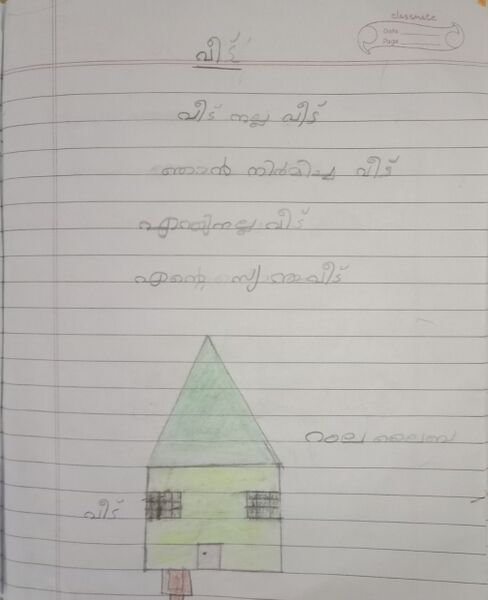 classmate
Date
Page
വീട്
വീട് നല്ല വീട്
ഞാൻ നിർമിച്ച വീട്
എന്തുനല്ല വീട്
എന്റെ സ്വന്തംവീട്
വീട്